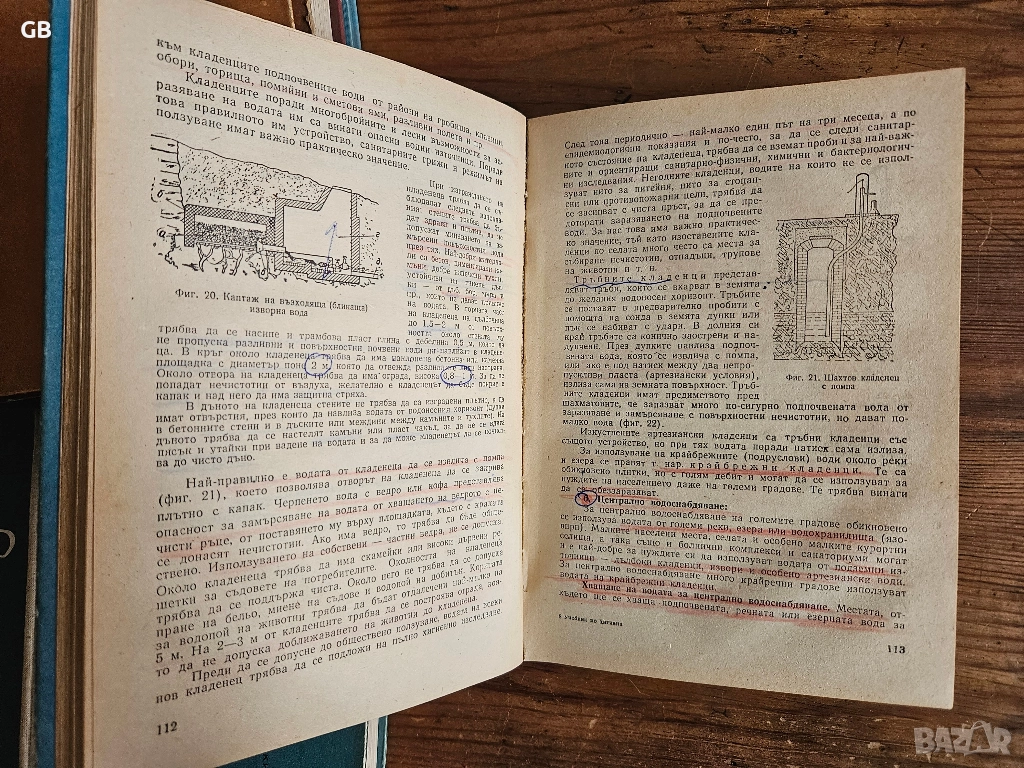 GB
към кладенците подпочвените води от района на гробища, кладници,
обори, торища, помийни и сметови ями, разливни полета и др.
Кладенците поради многобройните и лесни възможности за за-
разяване на водата им са винаги опасни водни източници. Поради
това правилното им устройство, санитарните грижи и режимът на
ползуване имат важно практическо значение.
При изграждането на
Фиг. 20. Каптаж на възходяща (бликаща)
изворна вода
до 1,5—2 м
трябва да се насипе и трамбова пласт глина с дебелина 0,5 м, която
не пропуска разливни и повърхностни почвени води да
ца. В кръг около кладенеца трябва да има
площадка с диаметър поне 2 м, която да отвежда
Около отвора на кладенеца трябва да има ограда, висока 0,8—1
попадат нечистотии от въздуха, желателно е кладенецът да бъде покрит с
капак и над него да има защитна стряха.
В дъното на кладенеца стените не трябва да са изградени плътно, а да
имат отвърстия, през които да навлиза водата от водоносния хоризонт (дупки
в бетонните стени и в дъските или междини между камъните и тухлите). На
дъното трябва да се настелят камъни или пласт чакъл, за да не се вдига
пясък и утайки при вадене на водата и за да може кладенецът да се почис-
ва до чисто дъно.
Най-правилно е водата от кладенеца да се извлича с помпа
(фиг. 21), което позволява отворът на кладенеца да се закрива
плътно с капак. Черпенето вода с ведро или кофа представлява
опасност за замърсяване на водата от хващането на ведрото с не-
чисти ръце, от поставянето му върху площадката, където с краката
се донасят нечистотии. Ако има ведро, то трябва да бъде общe-
ствено. Използуването на собствени — частни ведра, не се допуска.
Около кладенеца трябва да има скамейки или високи дървени ре-
шетки за съдовете на потребителите. Околността на кладенеца
трябва да се поддържа чиста. Около него не трябва да се допуска
пране на бельо, миене на съдове и водопой на добитък. Коритата
за водопой на животни трябва да бъдат отдалечени най-малко на
5 м. На 2—3 м от кладенците трябва да се построява ограда, коя-
то да не допуска доближаването на животни до кладенеца.
Преди да се допусне до обществено ползуване, водата на всеки
нов кладенец трябва да се подложи на пълно хигиенно изследване.
112
След това периодично — най-малко един път на три месеца, а по
епидемиологични показания и по-често, за да се следи санитар-
ното състояние на кладенеца, трябва да се вземат проби и за най-важ-
ните и ориентиращи санитарно-физични, химични и бактериологич-
ни изследвания. Негодните кладенци, водите на които не се изпол-
зуват нито за питейни, нито за стопан-
ски или противопожарни цели, трябва да
се засипват с чиста пръст, за да се пре-
дотврати заразяването на подпочвените
води. За нас това има важно практичес-
ко значение, тъй като изоставените кла-
денци по селата много често са места за
събиране нечистотии, отпадъци, трупове
на животни и т. н.
Тръбните кладенци представ-
ляват тръби, които се вкарват в земята
до желания водоносен хоризонт. Тръбите
се поставят в предварително пробити с
помощта на сонда в земята дупки или
пък се набиват с удари. В долния си
край тръбите са конично заострени и на-
дупчени. През дупките навлиза подпоч-
вената вода, която се извлича с помпа,
или ако е под натиск между два непро-
пускливи пласта (артезиански условия)
излиза сама на земната повърхност. Тръб-
ните кладенци имат предимството пред
Фиг. 21. Шахтов кладенец
с помпа
шахтовите, че заразяват много по-сигурно подпочвената вода от
заразяване и замърсяване с повърхностни нечистотии, но дават по-
малко вода (фиг. 22).
Изкуствените артезиански кладенци са тръбни кладенци със
същото устройство, но при тях водата поради натиск сама излиза.
За използуване на крайбрежните (подруслови) води около реки
и езера се правят т. нар. крайбрежни кладенци. Те са
обикновено плитки, но с голям дебит и могат да се използуват за
нуждите на населението даже на големи градове. Те трябва винаги
да се обеззаразяват.
3. Централно водоснабдяване:
За централно водоснабдяване на големите градове обикновено
се използува водата от големи реки, езера или водохранилища (язо-
вири). Малките населени места, селата и особено малките курортни
селища, а така също и болнични комплекси и санаториуми могат
и е най-добре за нуждите си да използуват водата от подземни из-
точници — дълбоки кладенци, извори и особено артезиански води.
За централно водоснабдяване много крайречни градове използуват
водата на крайбрежни кладенци.
Хващане на водата за централно водоснабдяване. Местата, от-
където ще се хваща подпочвената, речната или езерната вода за
8 Учебник по хигиена
113
BAZAR